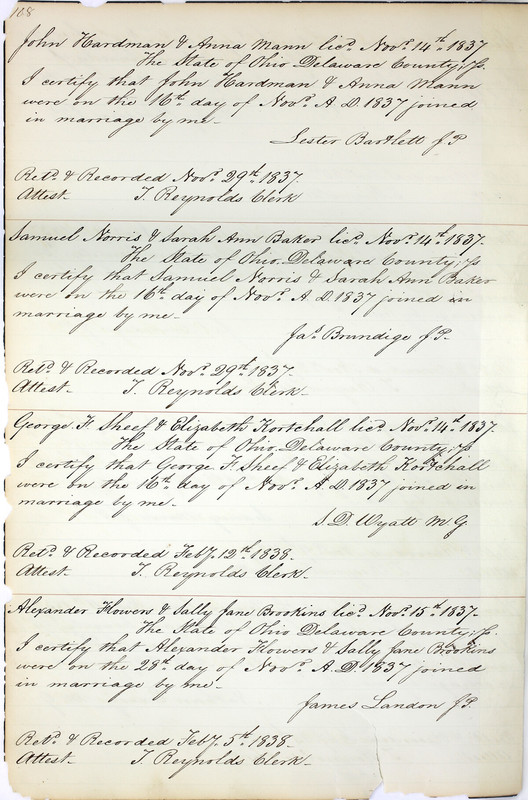 168
John Hardman & Anna Mann licd. Novr. 14th 1837
The State of Ohio Delaware County, ss.
I certify that John Hardman & Anna Mann
were on the 16th day of Novr. A.D. 1837 joined
in marriage by me-
Lester Bartlett J.P.
Retd. & Recorded Novr. 29th 1837.
Attest- T. Reynolds Clerk
Samuel Norris & Sarah Ann Baker licd. Novr. 14th 1837.
The State of Ohio Delaware County, ss
I certify that Samuel Norris & Sarah Ann Baker
were on the 16th day of Novr. A.D. 1837 joined in
marriage by me-
Jas. Brundige J.P.
Retd. & Recorded Novr. 29th 1837.
Attest- T. Reynolds Clerk-
George F. Sheef & Elizabeth Kortchall licd. Novr. 14th 1837.
The State of Ohio Delaware County, ss
I certify that George F. Sheef & Elizabeth Kortchall
were on the 16th day of Novr. A.D. 1837 joined in
marriage by me-
S. D. Wyatt M.G.
Retd. & Recorded Feby. 12th 1838.
Attest- T. Reynolds Clerk-
Alexander Flowers & Sally Jane Brookins licd. Novr. 15th 1837-
The State of Ohio Delaware County, ss.
I certify that Alexander Flowers & Sally Jane Brookins
were on the 28th day of Novr. A.D. 1837 joined
in marriage by me-
James Landon J.P.
Retd. & Recorded Feby. 5th 1838-
Attest- T. Reynolds Clerk-